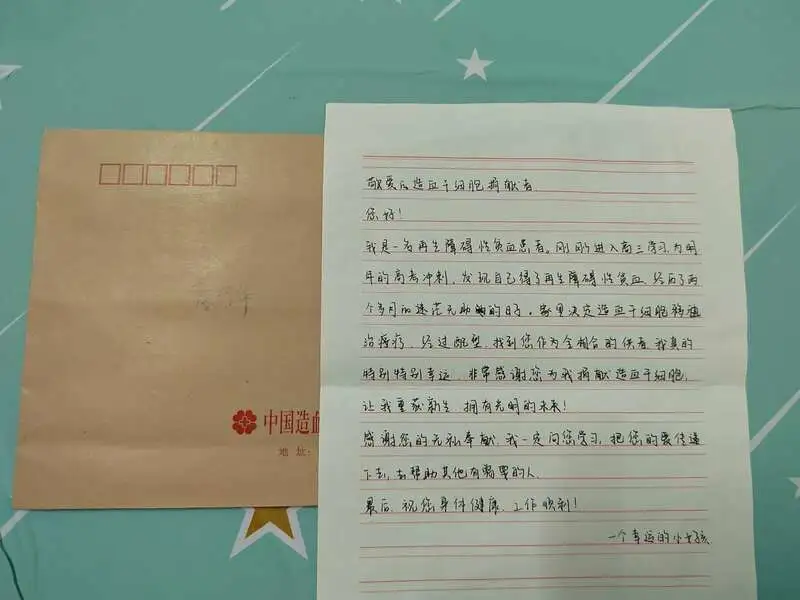 敬爱的造血干细胞捐献者
您好!
我是一名再生障碍性贫血患者。刚刚进入高三学习,为明
年的高考冲刺,发现自己得了再生障碍性贫血,经历了两
个多月的迷茫无助的日子。家里决定造血干细胞移植
治疗,经过配型,找到您作为全相合的供者,我真的
特别特别幸运,非常感谢您为我捐献造血干细胞,
让我重获新生,拥有光明的未来!
感谢您的无私奉献,我一定向您学习,把您的爱传递
下去,去帮助其他有需要的人.
最后,祝您身体健康,工作顺利!
一个幸运的小女孩
中国造血
地址: